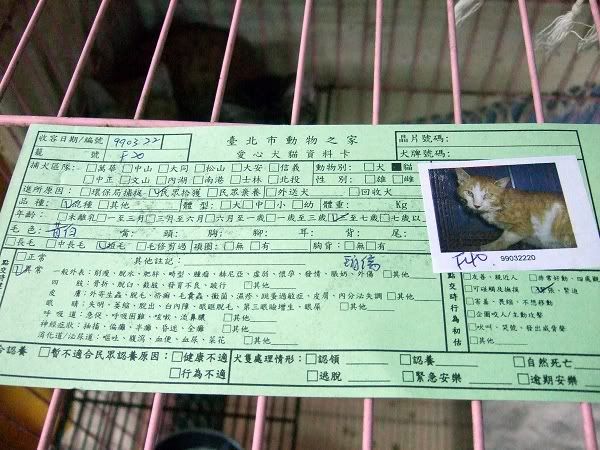 收容日期/編號 990322 臺北市動物之家 晶片號碼:
籠 號 F20 愛心犬貓資料卡 犬牌號碼:
補犬區隊: □萬華□中山□大同□松山□大安□信義 動物別: □犬■貓
□中正□文山□內湖□南港□士林□北投 性 別: □雄□雌
進所原因: □環保局捕捉□民眾拾獲□民眾棄養□外送犬 □回收犬
品 種: □混種□其他 體 型: □大□中□小□幼 體重: Kg
年齡: □未離乳□一至三月□三月至六月□六月至一歲□一歲至三歲□三至七歲□七歲以上
毛 色: 黃白 嘴: 頭: 胸: 腳: 耳: 背: 尾:
□長毛 □中長毛 □短毛 □毛修剪過 項圈: □無□有 胸背: □無□有
F20 99032220
□正常 其他註記:
□異常 一般外表: 削瘦、脫水、肥胖、畸型、腫瘤、赫尼亞、虛弱、懷孕、發情、脹奶、外傷 □其他
四 肢: 骨折、脫臼、截肢、發育不良、跛行 □其他
皮 膚: 外寄生蟲、脫毛、疥癬、毛囊蟲、黴菌、濕疹、跳蚤過敏症、皮膚、內分泌失調 □其他
眼 睛: 失明、萎縮、脫出、白內障、眼瞼脫毛、第三眼瞼增生、眼屎 □其他
呼 吸 道: 急促、呼吸困難、咳嗽、流鼻膿 □其他
神經症狀: 抽搐、偏癱、半癱、昏迷、全癱 □其他
消化道/泌尿道: 嘔吐、腹瀉、血便、血尿、菜花 □其他
點交時行為初估
□友善、親近人 □非常好動、四處觀
□可碰觸及擁摸 □緊張、緊迫
□害羞、畏縮、不想移動
□企圖咬人/主動攻擊
□吠叫、咒號、發出威脅聲
□其他
合認養 □暫不適合民眾認養原因: □健康不適 犬隻處理情形: □認領 □認養 □自然死亡
□行為不適 □逃脫 □緊急安樂 □逾期安樂